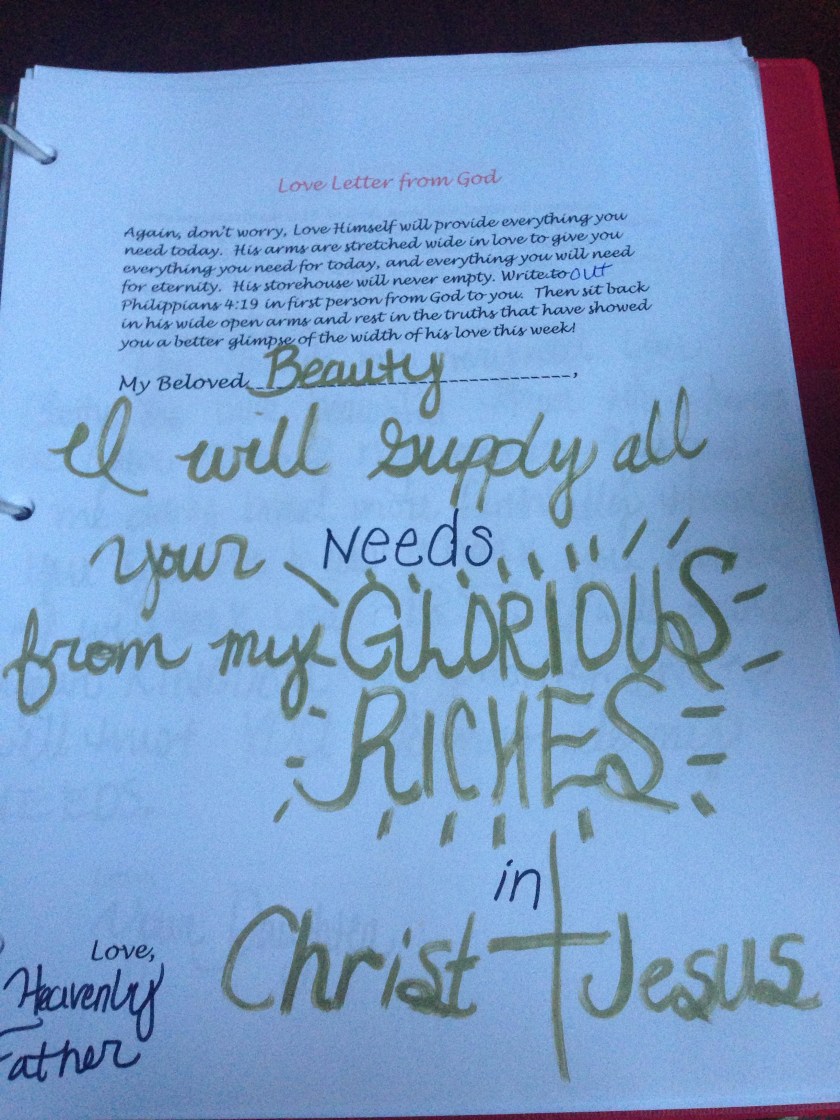 Love Letter from God
Again, don't worry, Love Himself will provide everything you
need today. His arms are stretched wide in love to give you
everything you need for today, and everything you will need
for eternity. His storehouse will never empty. Write to out
Philippians 4:19 in first person from God to you. Then sit back
in his wide open arms and rest in the truths that have showed
you a better glimpse of the width of his love this week!
My Beloved Beauty,
I will supply all
your Needs
from my GLORIOUS
RICHES
in
Christ Jesus
Love,
Heavenly
Father